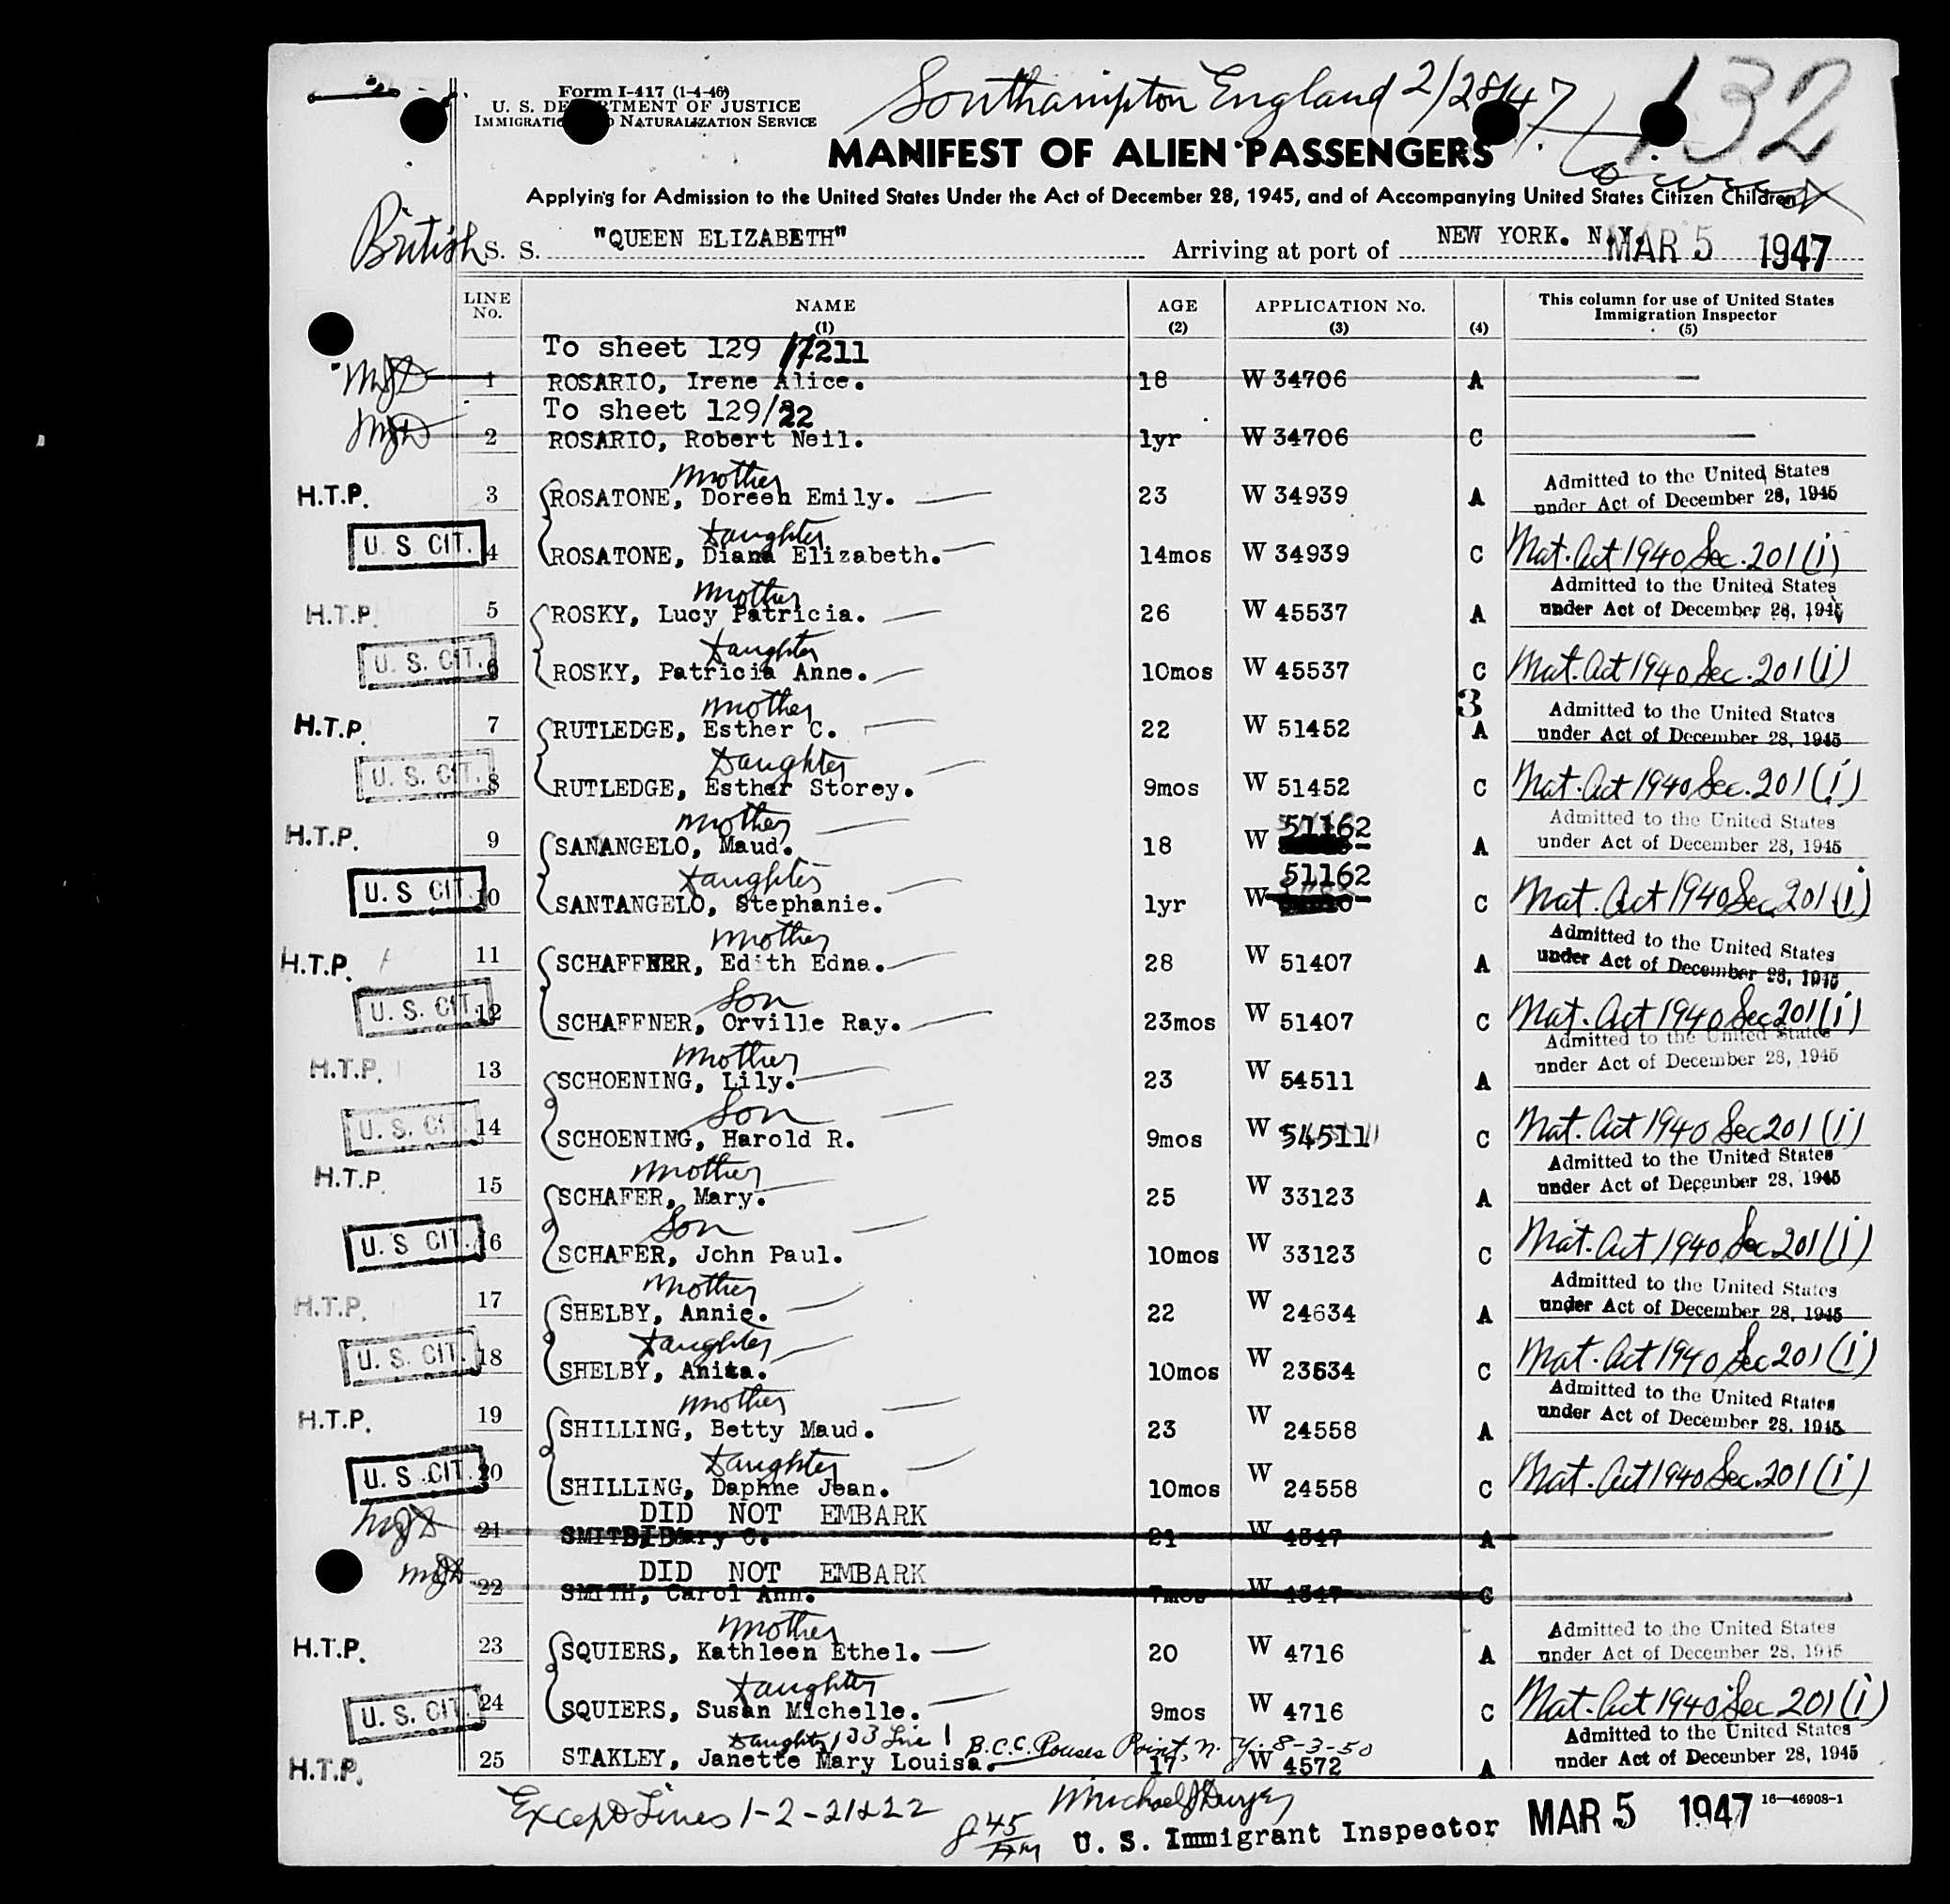 Form I-417 (1-4-46)
Southampton England 2/28/47
132
U. S. DEPARTMENT OF JUSTICE
IMMIGRATION AND NATURALIZATION SERVICE
MANIFEST OF ALIEN PASSENGERS
Applying for Admission to the United States Under the Act of December 28, 1945, and of Accompanying United States Citizen Children
British S. S. "QUEEN ELIZABETH" Arriving at port of NEW YORK. N.Y. MAR 5 1947
LINE No. NAME (1) AGE (2) APPLICATION No. (3) (4) This column for use of United States Immigration Inspector (5)
To sheet 129 /211
1 ROSARIO, Irene Alice. 18 W 34706 A
To sheet 129/22
2 ROSARIO, Robert Neil. 1yr W 34706 C
Mother
H.T.P. 3 ROSATONE, Doreen Emily. 23 W 34939 A Admitted to the United States under Act of December 28, 1945
daughter
U. S CIT. 4 ROSATONE, Diana Elizabeth. 14mos W 34939 C Nat. Act 1940 Sec. 201 (i)
Mother
H.T.P. 5 ROSKY, Lucy Patricia. 26 W 45537 A Admitted to the United States under Act of December 28, 1945
daughter
U. S. CIT. 6 ROSKY, Patricia Anne. 10mos W 45537 C Nat. Act 1940 Sec. 201 (i)
Mother 3
H.T.P. 7 RUTLEDGE, Esther C. 22 W 51452 A Admitted to the United States under Act of December 28, 1945
Daughter
U. S. CIT. 8 RUTLEDGE, Esther Storey. 9mos W 51452 C Nat. Act 1940 Sec. 201 (i)
Mother
H.T.P. 9 SANANGELO, Maud. 18 W 51162 A Admitted to the United States under Act of December 28, 1945
daughter
U. S CIT. 10 SANTANGELO, Stephanie. 1yr W 51162 C Nat. Act 1940 Sec. 201 (i)
Mother
H.T.P. 11 SCHAFFNER, Edith Edna. 28 W 51407 A Admitted to the United States under Act of December 28, 1945
Son
U. S. CIT. 12 SCHAFFNER, Orville Ray. 23mos W 51407 C Nat. Act 1940 Sec 201 (i)
Mother
H.T.P. 13 SCHOENING, Lily. 23 W 54511 A Admitted to the United States under Act of December 28, 1945
Son
U. S. CIT. 14 SCHOENING, Harold R. 9mos W 54511 C Nat. Act 1940 Sec 201 (i)
Mother
H.T.P. 15 SCHAFER, Mary. 25 W 33123 A Admitted to the United States under Act of December 28, 1945
Son
U. S CIT. 16 SCHAFER, John Paul. 10mos W 33123 C Nat. Act 1940 Sec 201 (i)
Mother
H.T.P. 17 SHELBY, Annie. 22 W 24634 A Admitted to the United States under Act of December 28, 1945
daughter
U. S. CIT. 18 SHELBY, Anita. 10mos W 23634 C Nat. Act 1940 Sec 201 (i)
Mother
H.T.P. 19 SHILLING, Betty Maud. 23 W 24558 A Admitted to the United States under Act of December 28, 1945
daughter
U. S. CIT. 20 SHILLING, Daphne Jean. 10mos W 24558 C Nat. Act 1940 Sec. 201 (i)
DID NOT EMBARK
21 Mary C. 21 W 4347 A
DID NOT EMBARK
22 SMITH, Carol Ann. 7mos W 4347 C
Mother
H.T.P. 23 SQUIERS, Kathleen Ethel. 20 W 4716 A Admitted to the United States under Act of December 28, 1945
daughter
U. S. CIT. 24 SQUIERS, Susan Michelle. 9mos W 4716 C Nat. Act 1940 Sec 201 (i)
daughter 133 Line 1 B.C.C. Rouses Point, N.Y. 8-3-50
H.T.P. 25 STAKLEY, Janette Mary Louisa. 17 W 4572 A Admitted to the United States under Act of December 28, 1945
Except Lines 1-2-21&22
8 45 AM U. S. Immigrant Inspector MAR 5 1947 16—46908-1